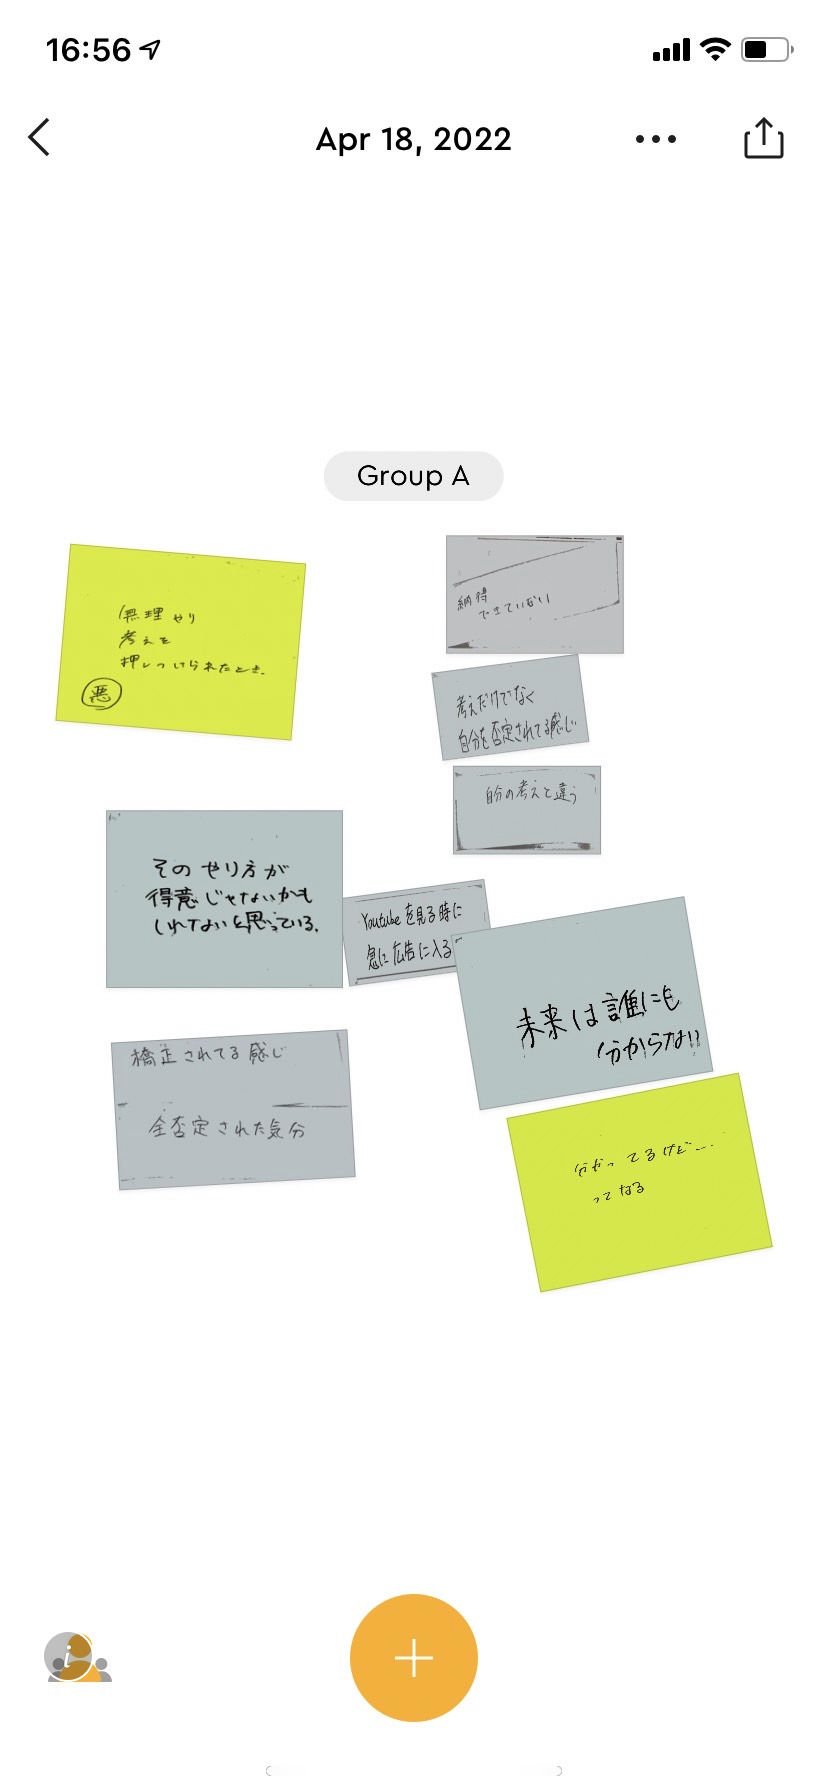 16:56
Apr 18, 2022
Group A
無理やり
考えを
押しつけられたとき.
悪
納得
できていない
考えだけでなく
自分を否定されてる感じ
自分の考えと違う
そのやり方が
得意じゃないかも
しれないと思っている.
Youtubeを見る時に
急に広告に入る
未来は誰にも
分からない
矯正されてる感じ
全否定された気分
分かってるけど…
ってなる